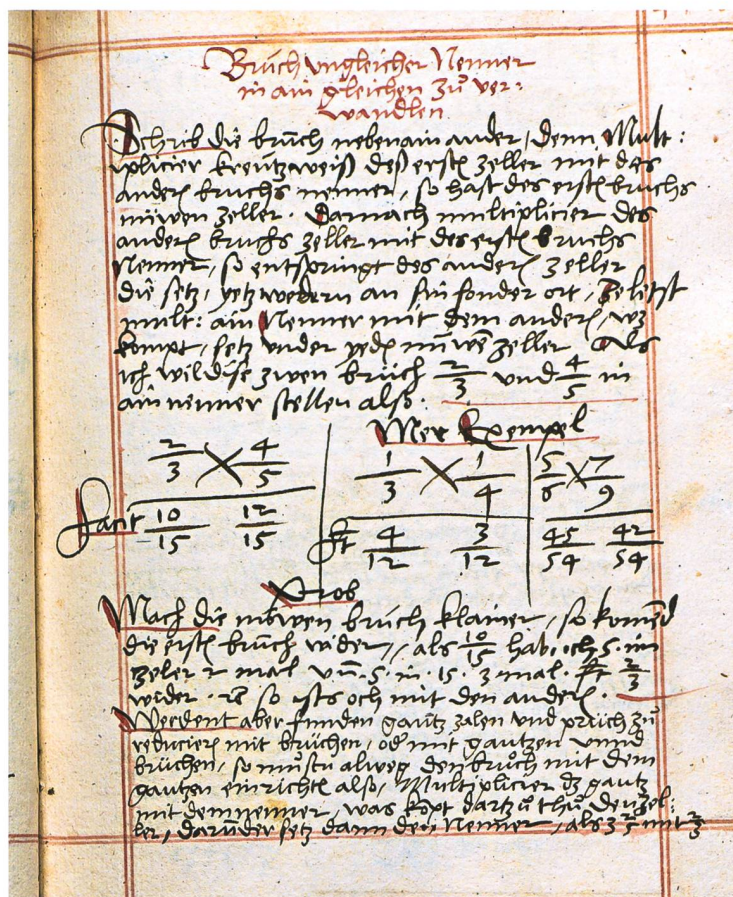 Bruch ungleicher Nenner
in ain gleichen zů ver:
wandlen
Schreib die brüch nebenain ander, denn Mult:
iplicier kreützweiß deß erstē zeller mit des
anderē bruchs nenner, so hast des erstē bruchs
nüwen zeller. Darnach multiplicier des
anderē bruchs zeller mit des erstē bruchs
Nenner, so entspringt des anderē zeller
die setz, yetzwedern an sin sonder ort, Zeletst
mult: ain Nenner mit dem anderē, wz
kompt, setz vnder yedē nüwē zeller Als
ich wil dise zwen brüch 2/3 vnd 4/5 in
ain nenner stellen also.
Mer Exempel
2/3 × 4/5 1/3 × 1/4 5/6 × 7/9
facit 10/15 12/15 ft 4/12 3/12 45/54 42/54
Prob
Mach die nüwen brüch klainer, so komēd
die erstē brüch wider, als 10/15 hab ich 5 im
zeler 2 mal vn̄ 5 in 15 3 mal ft 2/3
wider so ists och mit den anderē.
Werdent aber funden gantz zalen vnd prüch zů
reducierē mit brüchen, od mit gantzen vnnd
brüchen, so můstu alweg den bruch mit dem
gantzen einrichtē also, Multiplicier dz gantz
mit dem nenner, was kōpt dartzů thů den zel:
ler, darunder setz dann den Nenner, als 3 2/5 mit 2/3